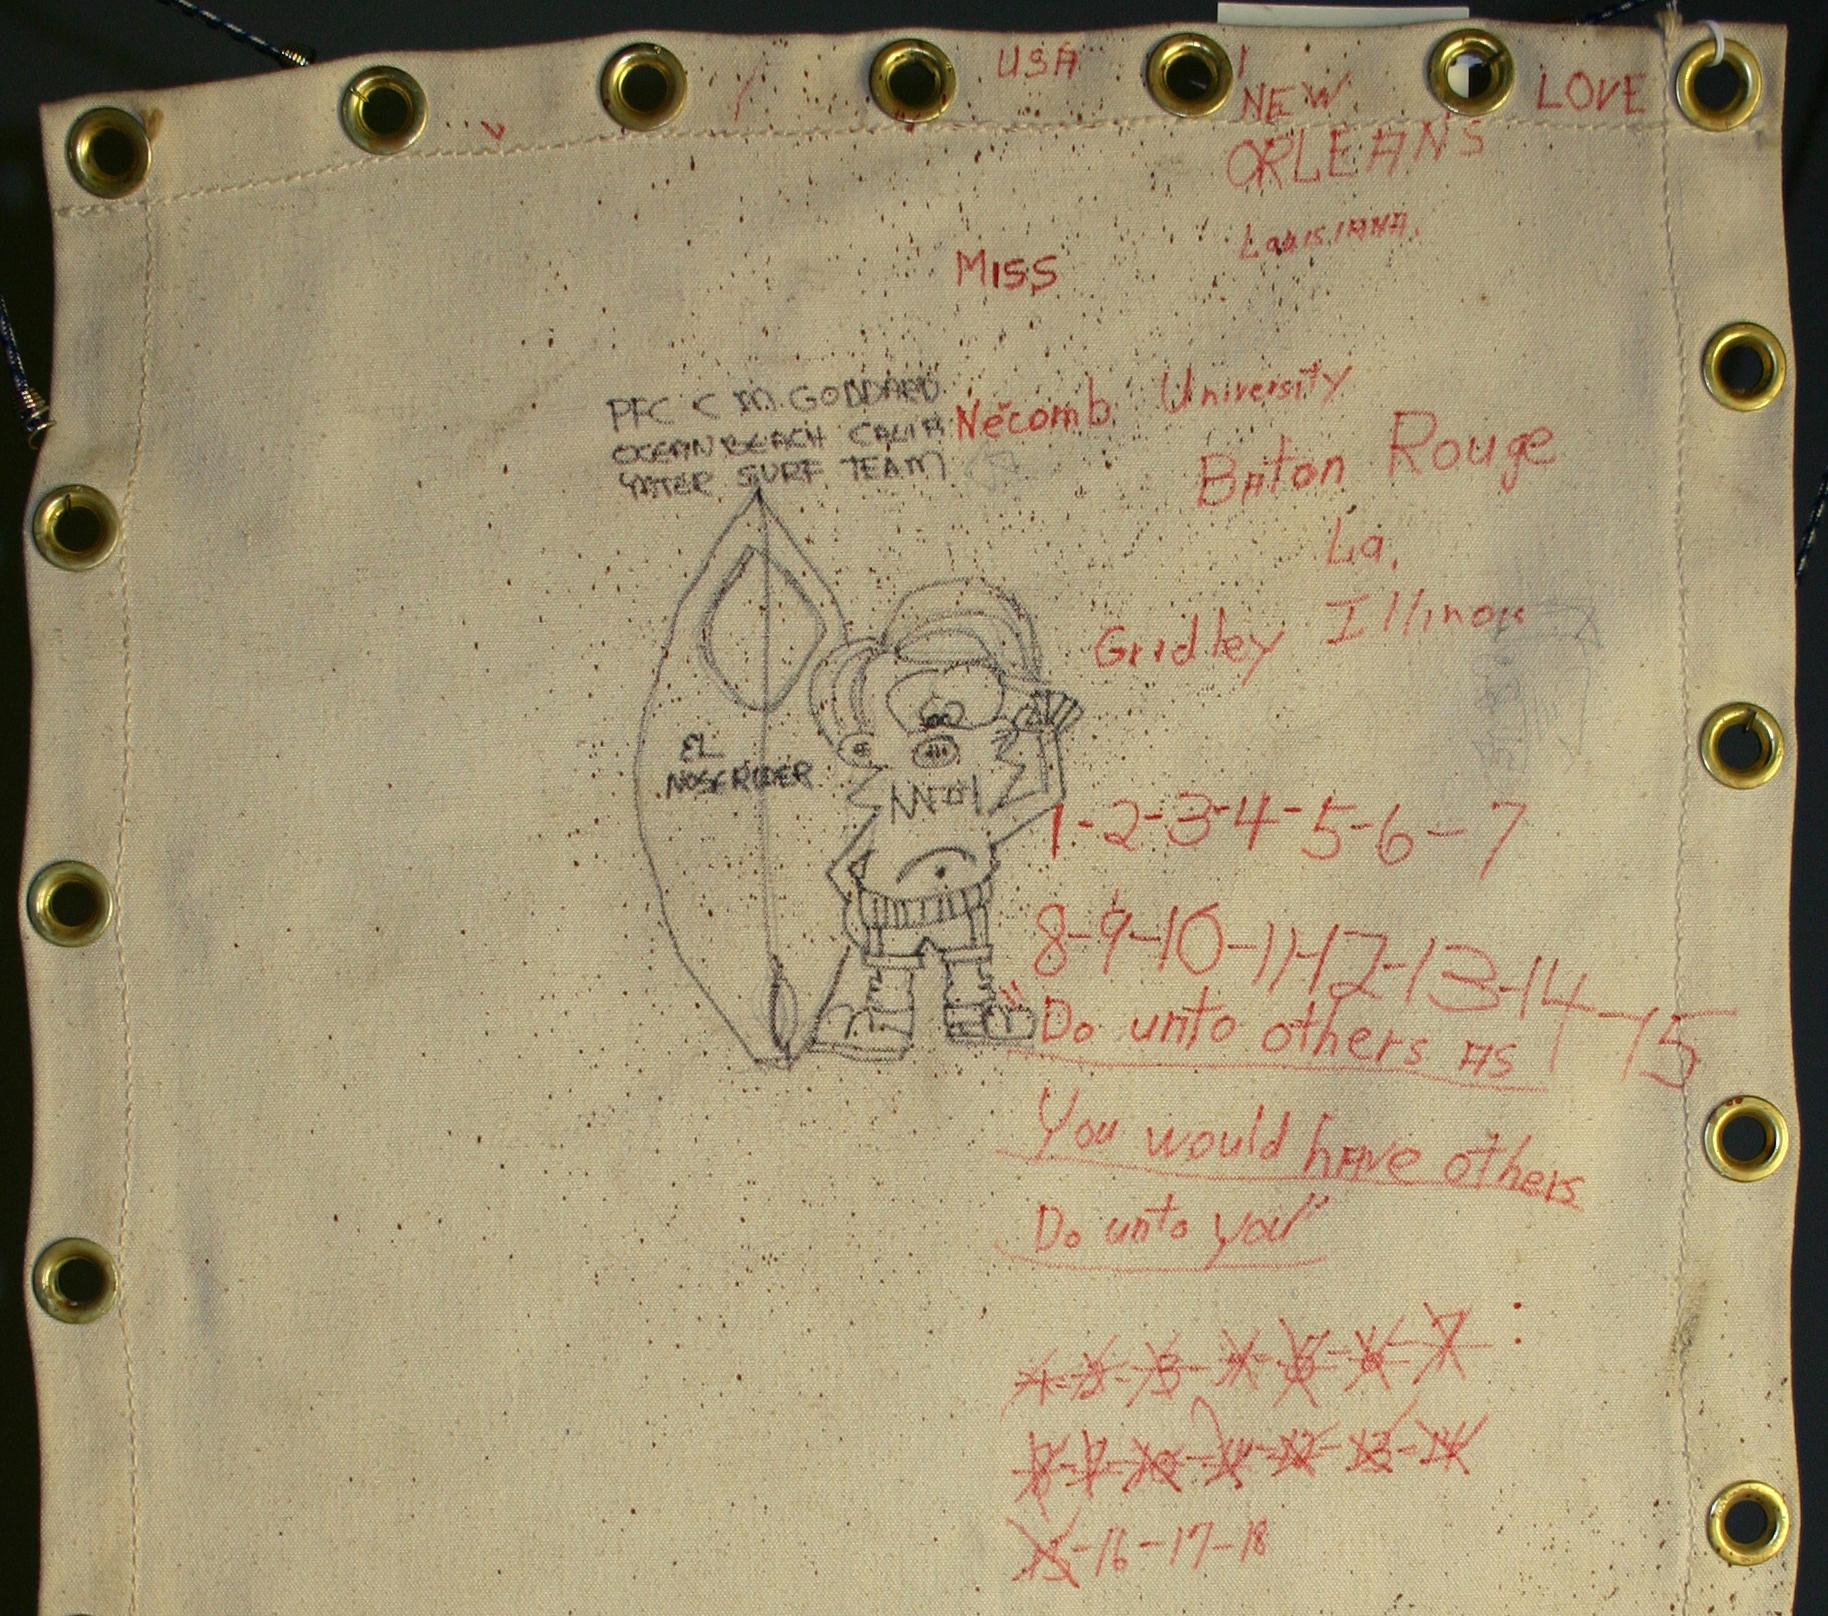 USA
I
NEW
ORLEANS
LOVE
Louisiana.
MISS
PFC C M. GODDARD
OCEAN BEACH CALIF
YATER SURF TEAM
Necomb University
Baton Rouge
La.
Gridley Illinois
EL
NOSERIDER
1-2-3-4-5-6-7
8-9-10-11-12-13-14-15
"Do unto others as
You would have others
Do unto you"
1-2-3-4-5-6-7-
8-9-10-11-12-13-14
15-16-17-18